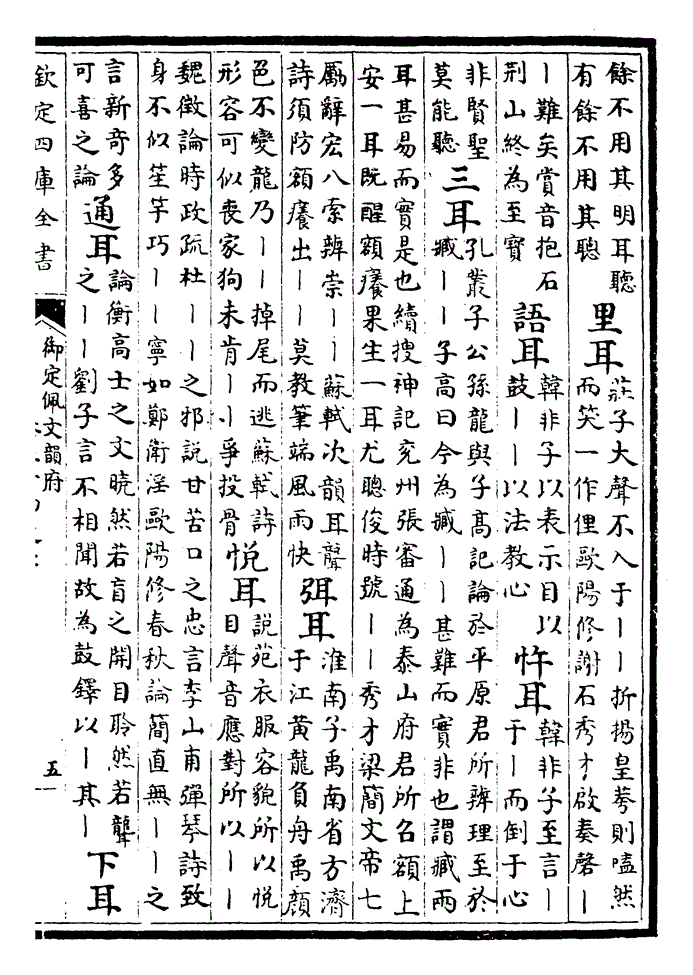 餘不用其明耳聽
有餘不用其聰
里耳
莊子大聲不入于丨丨折揚皇荂則嗑然
而笑一作俚歐陽修謝石秀才啟奏磬丨
丨難矣賞音抱石
荆山終為至寶
語耳
韓非子以表示目以
鼓丨丨以法教心
忤耳
韓非子至言丨
于丨而倒于心
非賢聖
莫能聽
三耳
孔叢子公孫龍與子髙記論於平原君所辨理至於
臧丨丨子高曰今為臧丨丨甚難而實非也謂臧兩
耳甚易而實是也續搜神記兖州張審通為泰山府君所召額上
安一耳既醒額癢果生一耳尤聰俊時號丨丨秀才梁簡文帝七
勵辭宏八索辨崇丨丨蘇軾次韻耳聾
詩須防額癢出丨丨莫教筆端風雨快
弭耳
淮南子禹南省方濟
于江黃龍負舟禹顏
色不變龍乃丨丨掉尾而逃蘇軾詩
形容可似喪家狗未肯丨丨爭投骨
悅耳
說苑衣服容貌所以悅
目聲音應對所以丨丨
魏徵論時政疏杜丨丨之邪說甘苦口之忠言李山甫彈琴詩致
身不似笙竽巧丨丨寧如鄭衛淫歐陽修春秋論簡直無丨丨之
言新奇多
可喜之論
通耳
論衡高士之文曉然若盲之開目聆然若聾
之丨丨劉子言不相聞故為鼓鐸以丨其丨
下耳
欽定四庫全書
御定佩文韻府
五